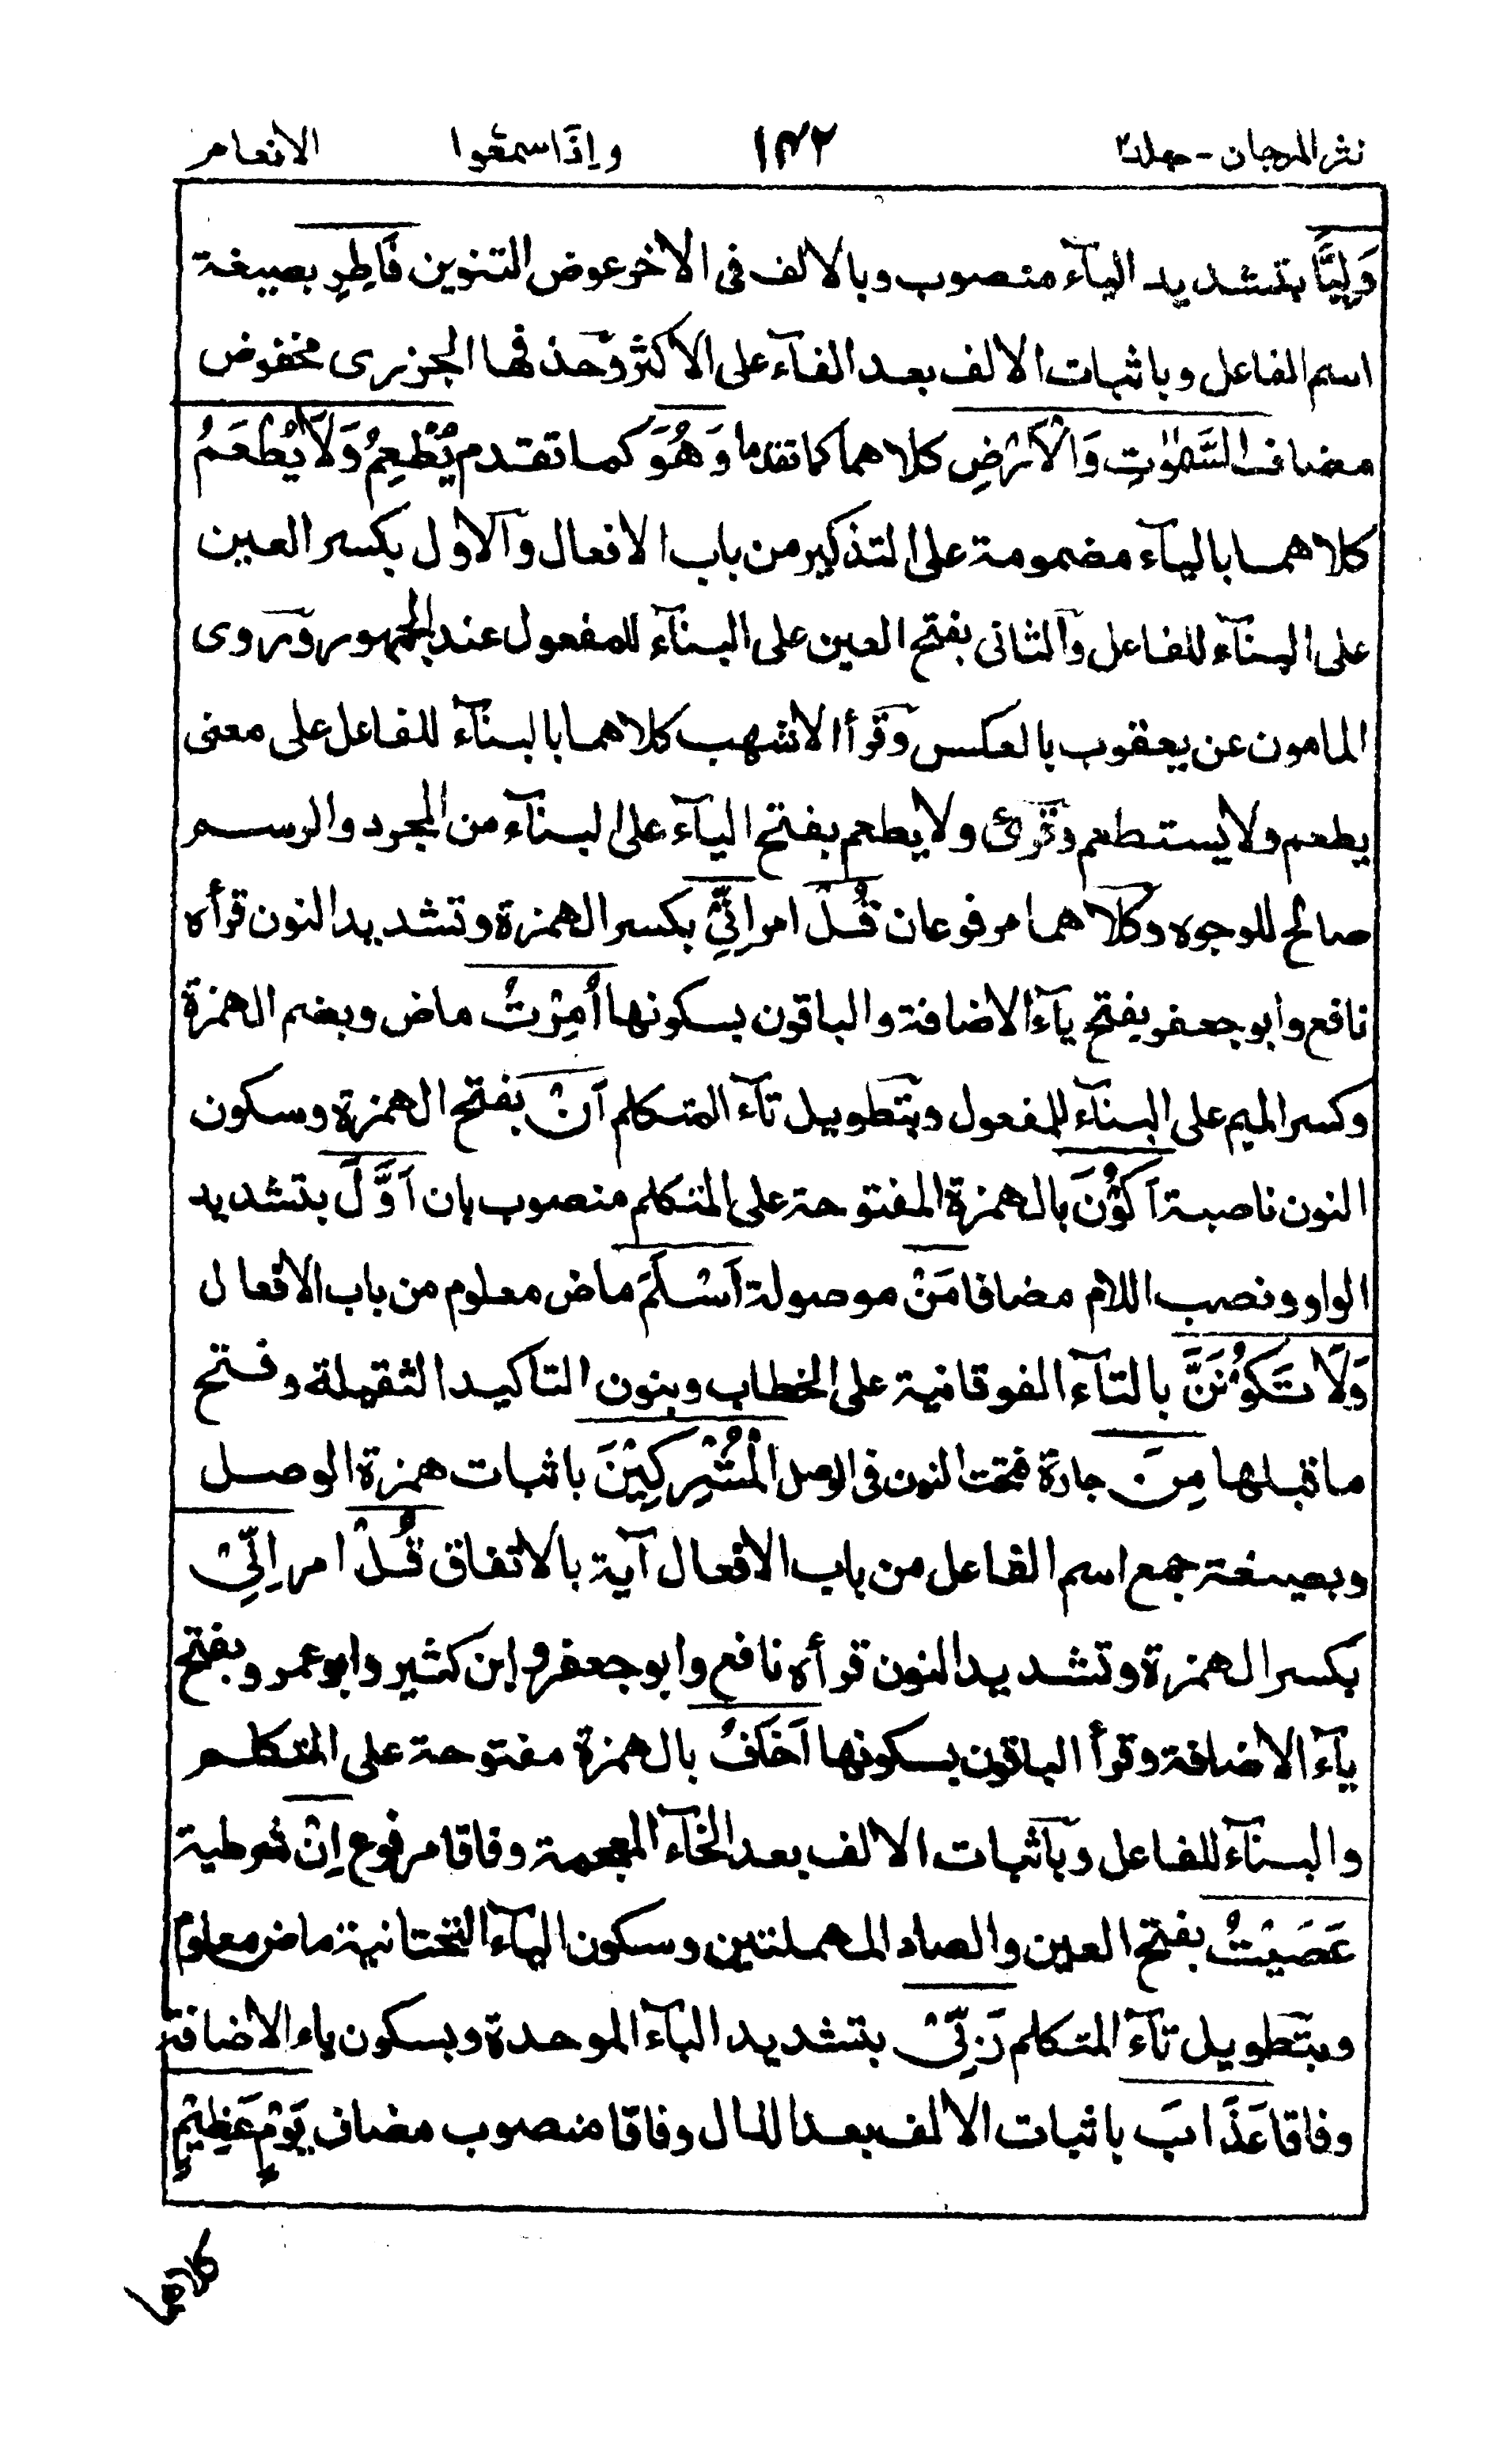 نثر المرجان - جلد٢ ١٤٢ واذا سمعوا الانعام
وَلِيًّا بتشديد اليآء منصوب وبالالف فى الاخر عوض التنوين فَاطِرِ بصيغة
اسم الفاعل وباثبات الالف بعد الفآء على الاكثر وحذفها الجزرى مخفوض
مضاف السَّمٰوٰتِ وَالْاَرْضِ كلاهما كما تقدما وَهُوَ كما تقدم يُطْعِمُ وَلَا يُطْعَمُ
كلاهما باليآء مضمومة على التذكير من باب الافعال والاول بكسر العين
على البنآء للفاعل والثانى بفتح العين على البنآء للمفعول عند الجمهور وروى
المامون عن يعقوب بالعكس وقرأ الاشهب كلاهما بالبنآء للفاعل على معنى
يطعم ولا يستطعم وقرئ ولا يطعم بفتح اليآء على البنآء من المجرد والرسم
صالح للوجوه وكلاهما مرفوعان قُلْ امر اِنِّىْ بكسر الهمزة وتشديد النون قرأه
نافع وابو جعفر بفتح يآء الاضافة والباقون بسكونها اُمِرْتُ ماض وبضم الهمزة
وكسر الميم على البنآء للمفعول وبتطويل تآء المتكلم اَنْ بفتح الهمزة وسكون
النون ناصبة اَكُوْنَ بالهمزة المفتوحة على المتكلم منصوب بان اَوَّلَ بتشديد
الواو ونصب اللام مضافا مَنْ موصولة اَسْلَمَ ماض معلوم من باب الافعال
وَلَا تَكُوْنَنَّ بالتآء الفوقانية على الخطاب وبنون التاكيد الثقيلة وفتح
ما قبلها مِنَ جارة فتحت النون فى الوصل الْمُشْرِكِيْنَ باثبات همزة الوصل
وبصيغة جمع اسم الفاعل من باب الافعال آية بالاتفاق قُلْ امر اِنِّىْ
بكسر الهمزة وتشديد النون قرأه نافع وابو جعفر وابن كثير وابو عمرو بفتح
يآء الاضافة وقرأ الباقون بسكونها اَخَافُ بالهمزة مفتوحة على المتكلم
والبنآء للفاعل وباثبات الالف بعد الخآء المعجمة وفاقا مرفوع اِنْ شرطية
عَصَيْتُ بفتح العين والصاد المهملتين وسكون اليآء التحتانية ماض معلوم
وبتطويل تآء المتكلم رَبِّىْ بتشديد البآء الموحدة وبسكون ياء الاضافة
وفاقا عَذَابَ باثبات الالف بعد الذال وفاقا منصوب مضاف يَوْمٍ عَظِيْمٍ
كلاهما